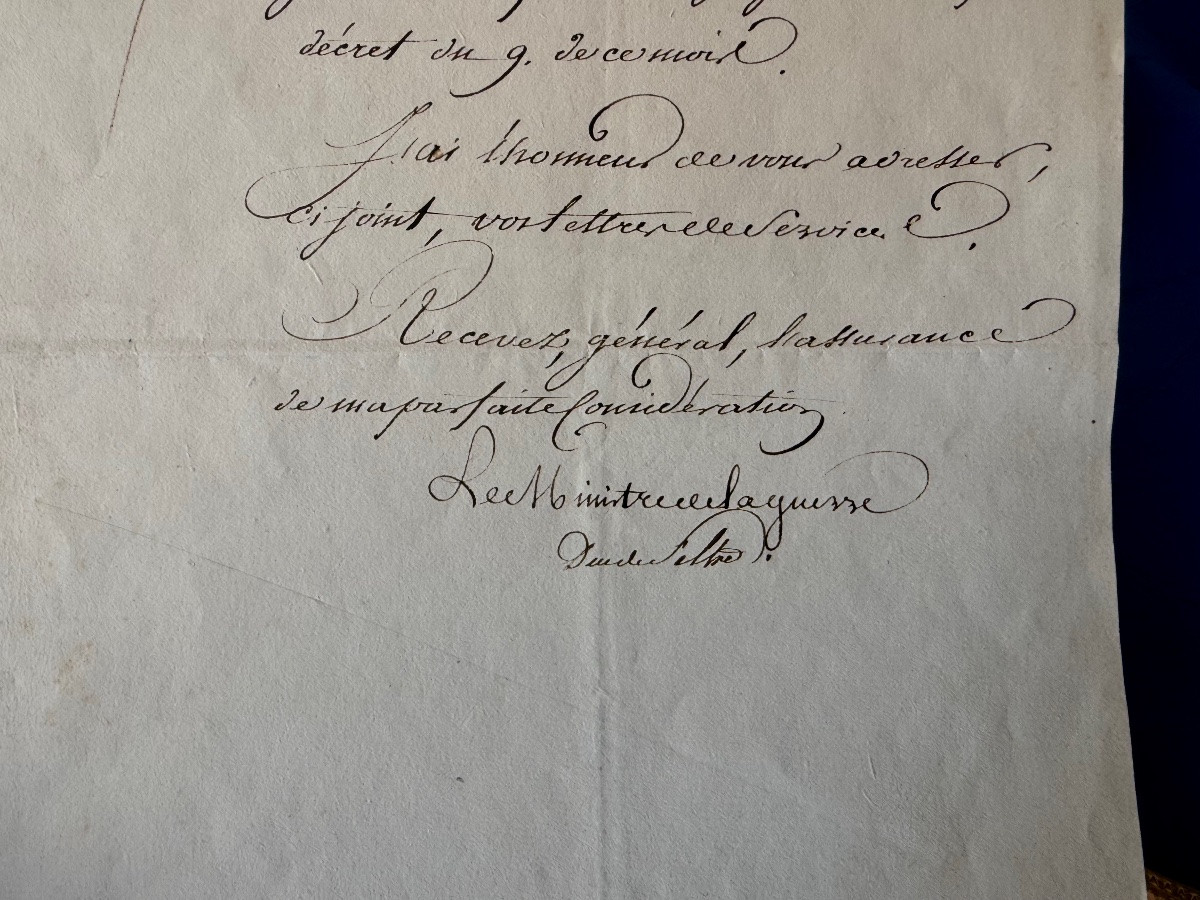 décret du 9. de ce mois.
J'ai l'honneur de vous adresser,
ci joint, vos lettres de Service.
Recevez, général, l'assurance
de ma parfaite Considération
Le Ministre de la guerre
Duc de Feltre.